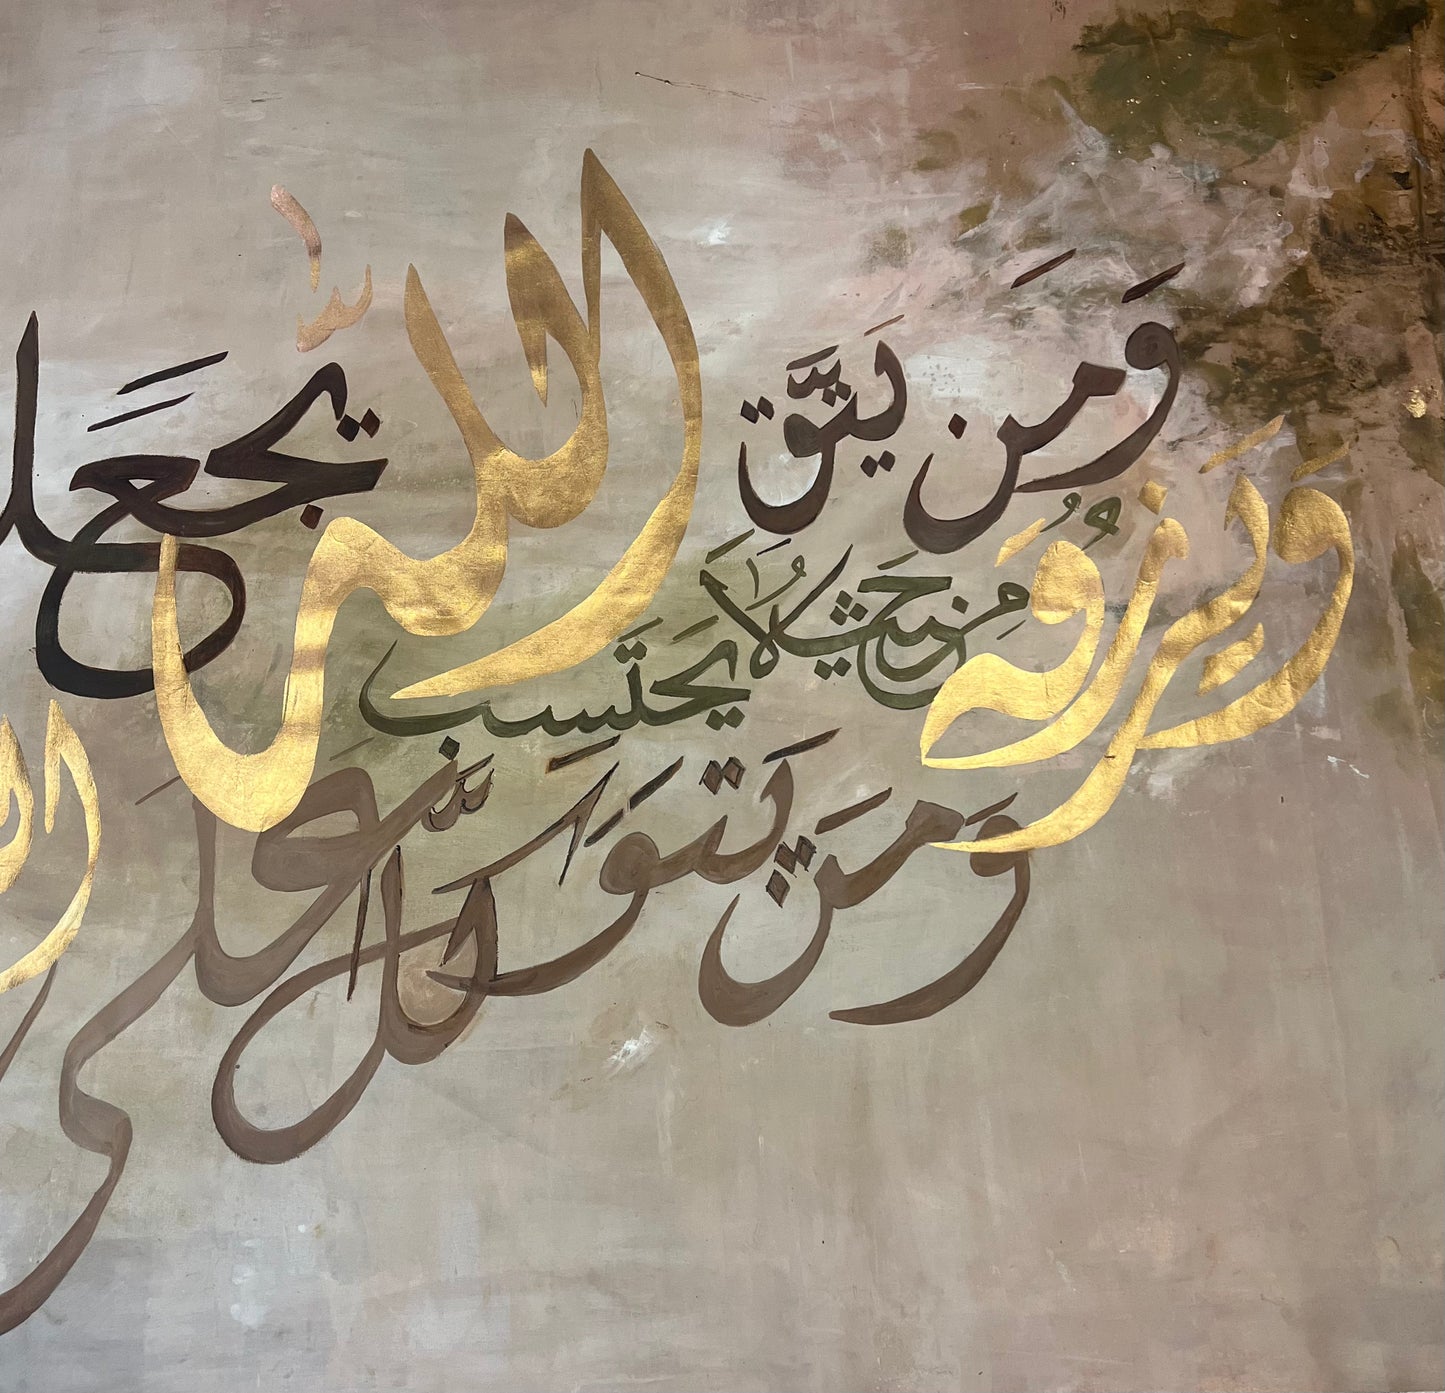 وَمَن يَتَّق اللّٰه يجعَل
وَيَرزقه من حَيثُ لَا يَحتَسِب
وَمَن يَتَوَكَّل عَلى